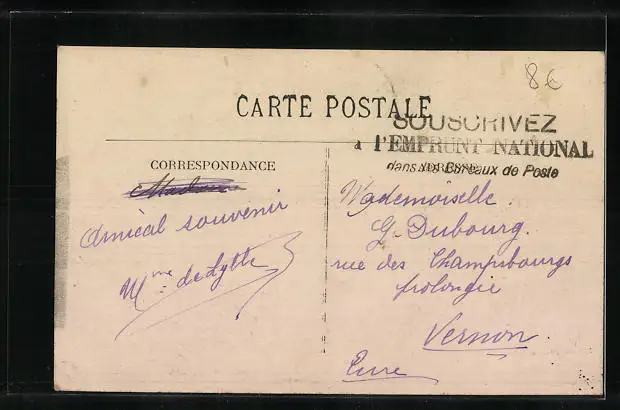 8€
CARTE POSTALE
SOUSCRIVEZ
à l'EMPRUNT NATIONAL
dans les Bureaux de Poste
CORRESPONDANCE
ADRESSE
Madame
Amical souvenir
Mme
Mademoiselle
G. Dubourg.
rue des Champsbourgs
prolongée
Vernon
Eure